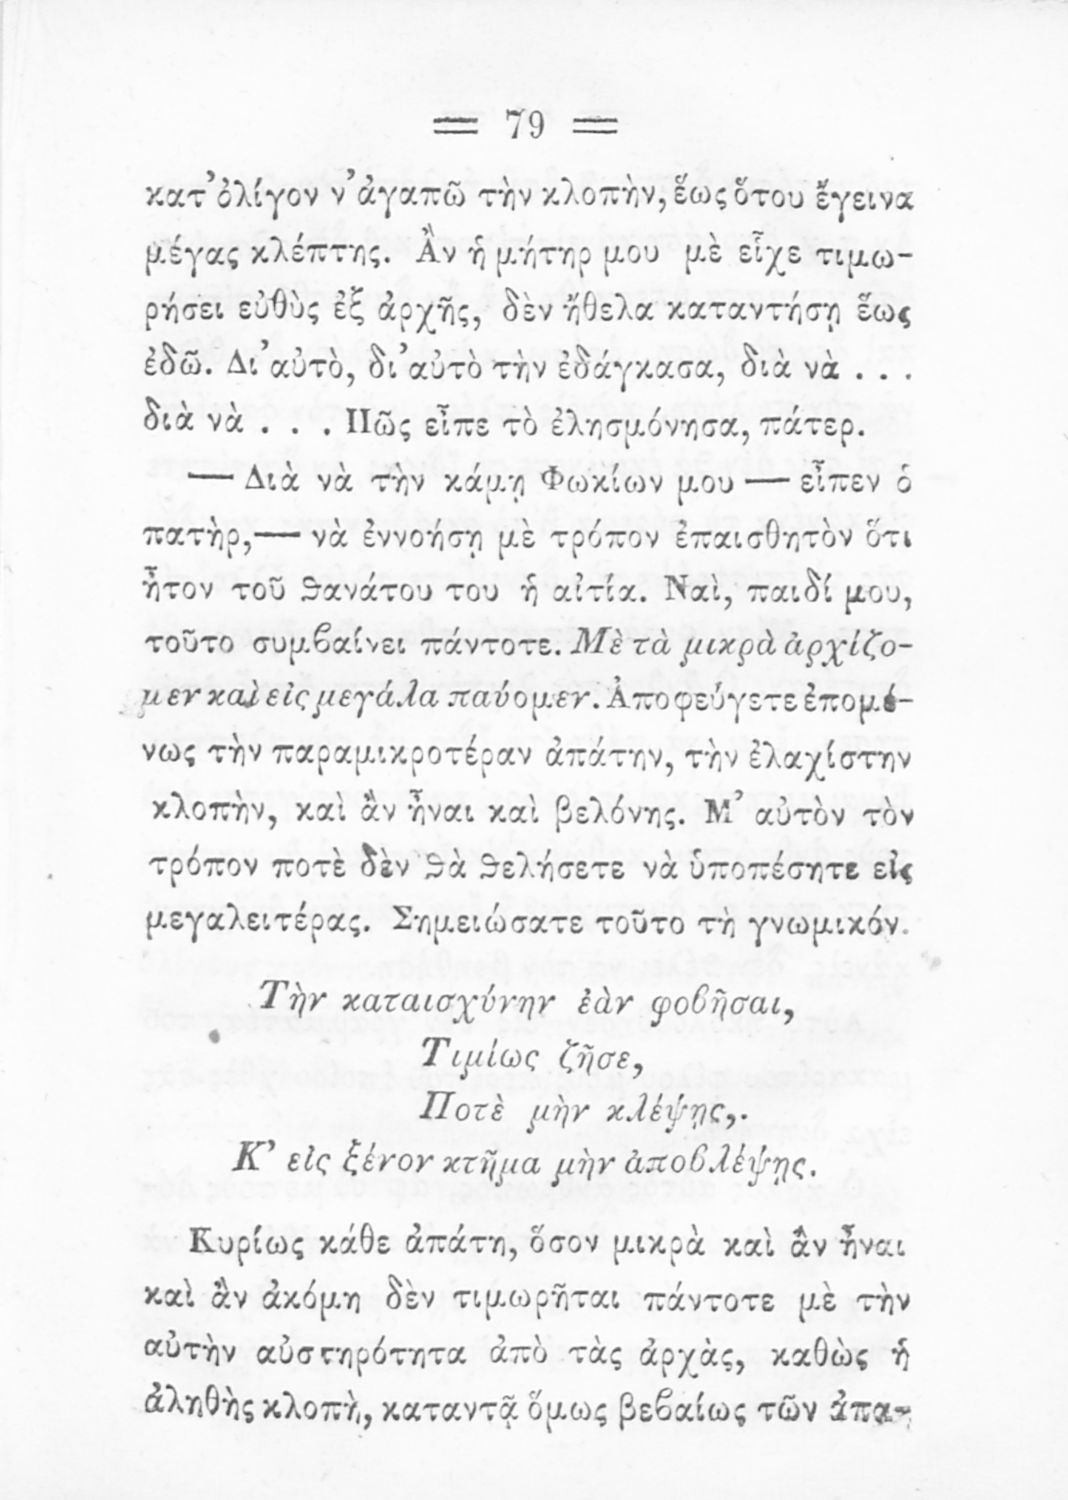 = 79 =
κατ’ὀλίγον ν’ἀγαπῶ τὴν κλοπὴν, ἕως ὅτου ἔγεινα
μέγας κλέπτης. Ἂν ἡ μήτηρ μου μὲ εἶχε τιμω-
ρήσει εὐθὺς ἐξ ἀρχῆς, δὲν ἤθελα καταντήσῃ ἕως
ἐδῶ. Δι’αὐτὸ, δι’αὐτὸ τὴν ἐδάγκασα, διὰ νὰ . . .
διὰ νὰ . . . Πῶς εἶπε τὸ ἐλησμόνησα, πάτερ.
— Διὰ νὰ τὴν κάμῃ Φωκίων μου — εἶπεν ὁ
πατὴρ,— νὰ ἐννοήσῃ μὲ τρόπον ἐπαισθητὸν ὅτι
ἦτον τοῦ ϑανάτου του ἡ αἰτία. Ναὶ, παιδί μου,
τοῦτο συμβαίνει πάντοτε. Μὲ τὰ μικρὰ ἀρχίζο-
μεν καὶ εἰς μεγάλα παύομεν. Ἀποφεύγετε ἐπομέ-
νως τὴν παραμικροτέραν ἀπάτην, τὴν ἐλαχίστην
κλοπὴν, καὶ ἂν ἦναι καὶ βελόνης. Μ’ αὐτὸν τὸν
τρόπον ποτὲ δὲν ϑὰ ϑελήσετε νὰ ὑποπέσητε εἰς
μεγαλειτέρας. Σημειώσατε τοῦτο τὴ γνωμικόν.
Τὴν καταισχύνην ἐὰν φοβῆσαι,
Τιμίως ζῆσε,
Ποτὲ μὴν κλέψῃς,.
Κ’ εἰς ξένον κτῆμα μὴν ἀποβλέψῃς.
Κυρίως κάθε ἀπάτη, ὅσον μικρὰ καὶ ἂν ἦναι
καὶ ἂν ἀκόμη δὲν τιμωρῆται πάντοτε μὲ τὴν
αὐτὴν αὐστηρότητα ἀπὸ τὰς ἀρχὰς, καθὼς ἡ
ἀληθὴς κλοπὴ, καταντᾷ ὅμως βεβαίως τῶν ἀπα-